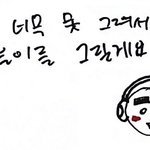 너무 못 그려서
블이를 그릴게요